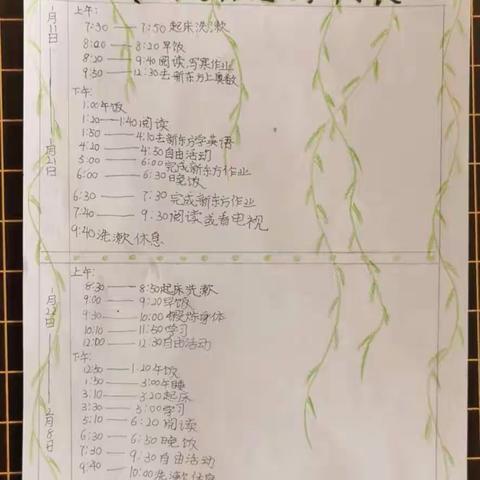 上午:
7:30——7:50起床洗漱
8:00——8:20早饭
8:20——9:40阅读,写寒作业
9:50——12:30去新东方上奥数
1月11日——1月21日
下午:
1:00午饭
1:20——1:40阅读
1:50——4:10去新东方学英语
4:20——4:50自由活动
5:00——6:00完成新东方作业
6:00——6:30晚饭
6:30——7:30完成新东方作业
7:40——9:30阅读或看电视
9:40洗漱休息
上午:
8:30——8:50起床洗漱
9:00——9:20早饭
9:30——10:00锻炼身体
10:10——11:50学习
12:00——12:30自由活动
1月22日——2月8日
下午:
12:50——1:20午饭
1:30——3:00午睡
3:10——3:20起床
3:30——5:00学习
5:10——6:20阅读
6:30——6:50晚饭
7:30——9:30自由活动
9:40——10:00洗漱休息